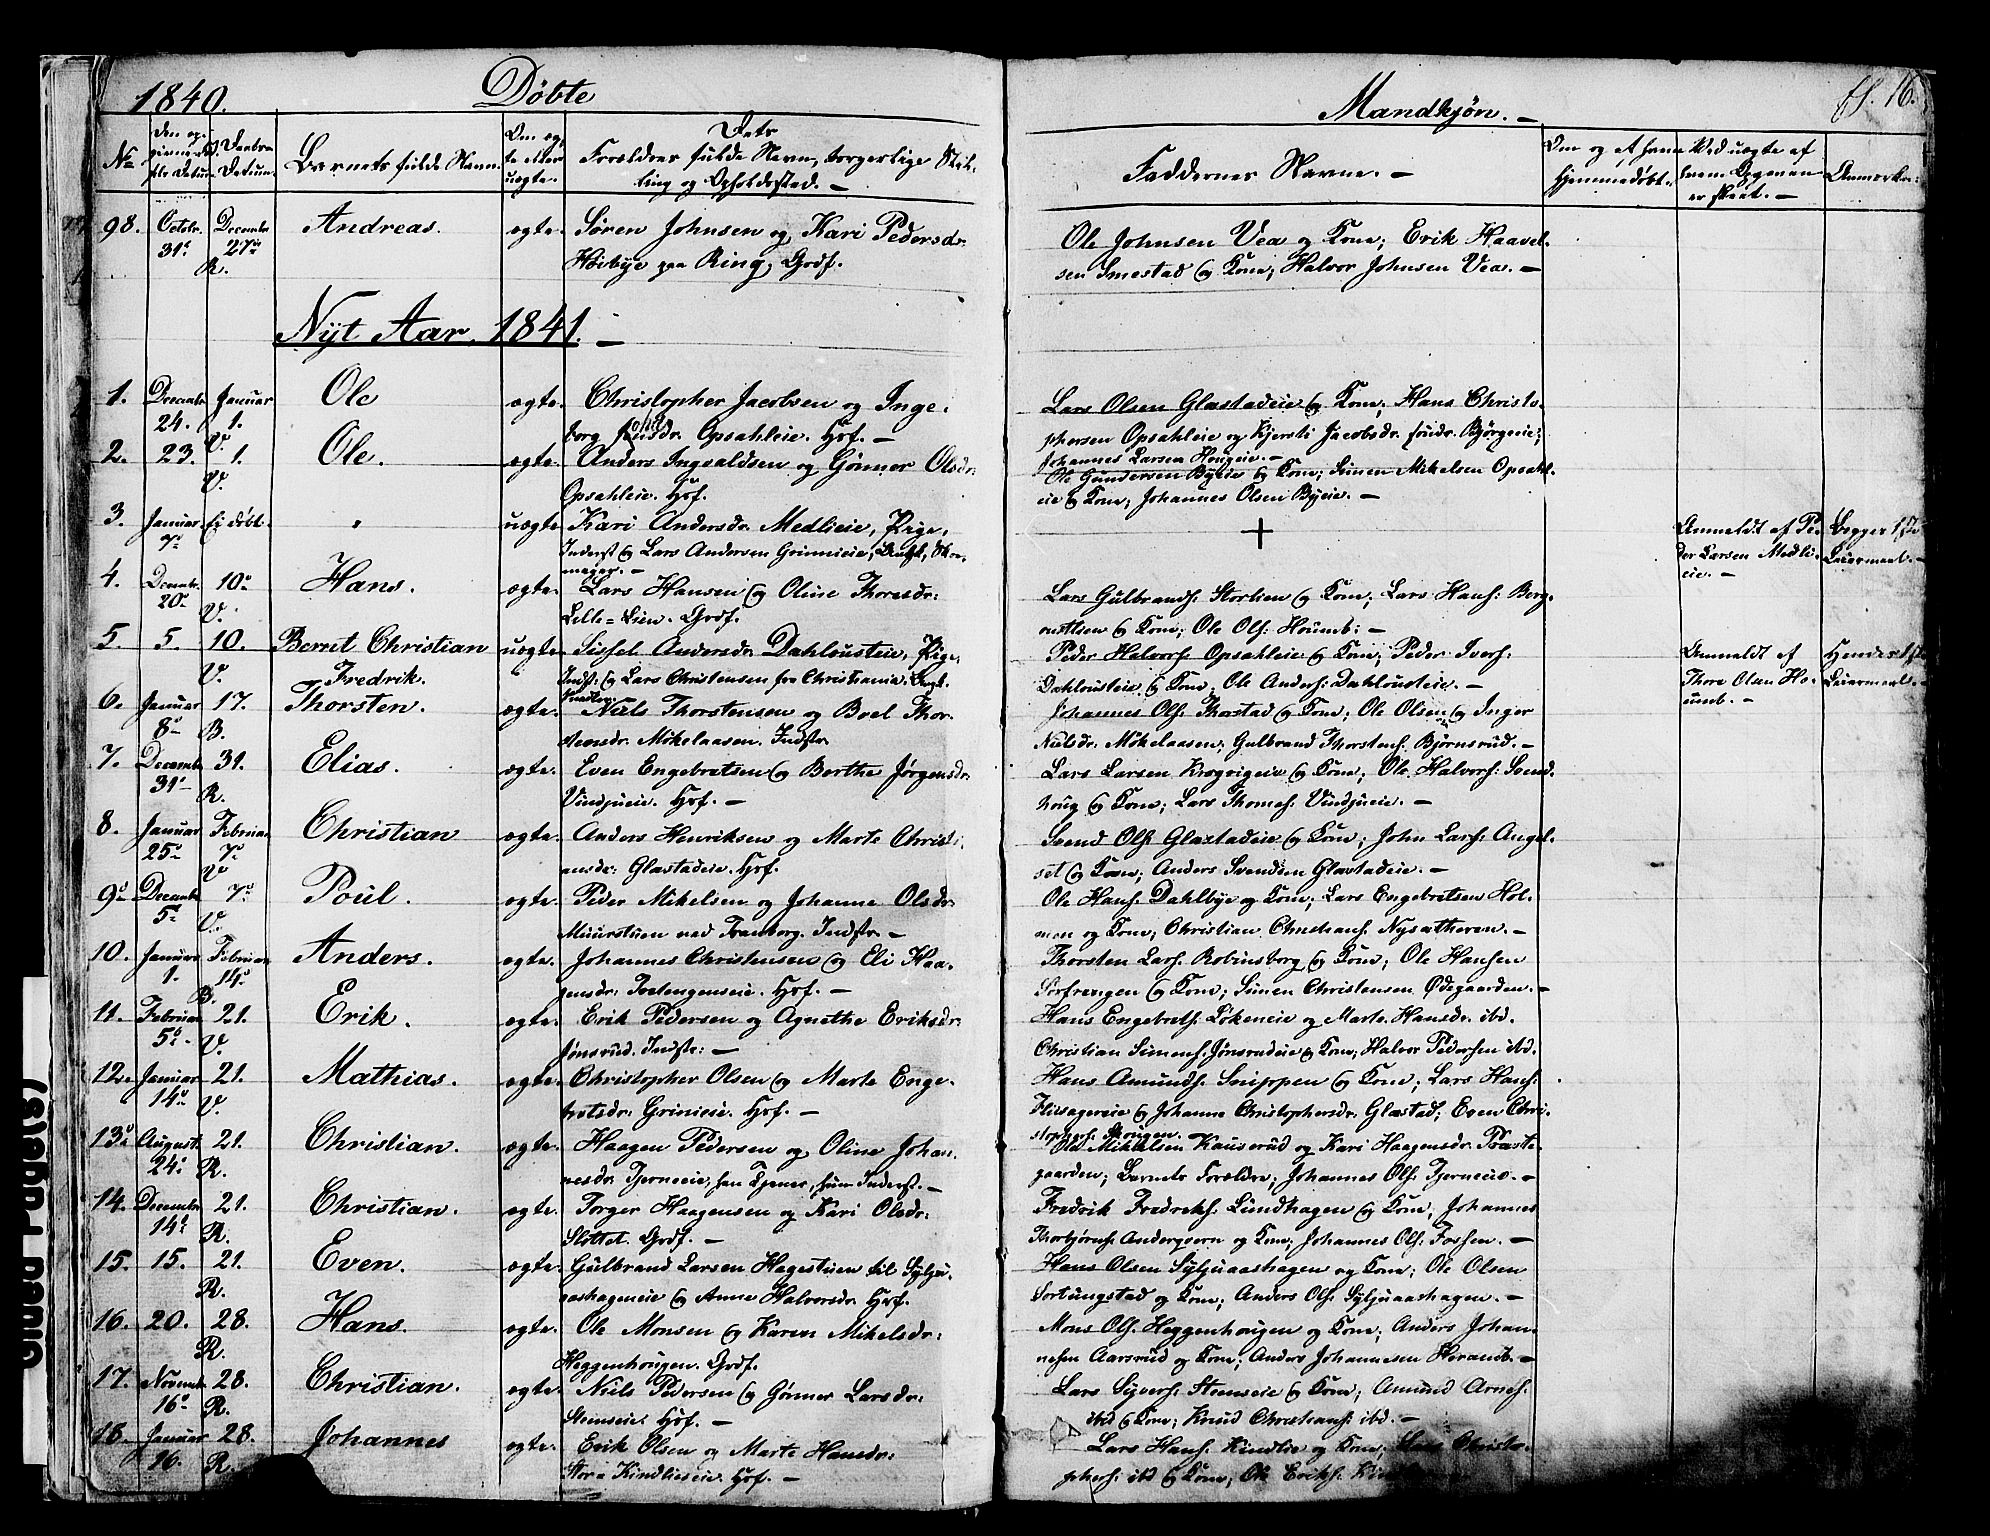 1840. Døbte Mandkjøn. – fl. 16.
No Den opgivne fødsels Datum. Daabens Datum. Barnets fulde Navn. Om ægte eller uægte. Dets Forældres fulde Navn, borgerlige Stilling og Opholdssted. – Faddernes Navne. – Om og at være hjemmedøbt. Ved uægte af hvem Opgaven er skeet. – Anmærkn:
98. Octobr. 31te Decembr. 27de R. Andreas. ægte. Søren Johnsen og Kari Pedersdr.
Høibye paa Ring, Grdf.
Ole Johnsen Vea og Kone; Erik Haavel-
sen Smestad og Kone; Halvor Johnsen Vea. –
Nyt Aar 1841. –
1. Decembr. 24. Januar 1. V. Ole ægte. Christopher Jacobsen og Inge-
borg Opsahleie. Hsf. –
Lars Olsen Glæstadeie og Kone; Hans Christo-
phersen Opsahleie og Kjersti Jacobsdr. Bjørgeeie;
Johannes Larsen Hougeie. –
2. 23. 1. V. Ole. ægte. Anders Ingvaldsen og Gønner Olsdr.
Opsahleie. Hsf.
Ole Gundersen Byeie og Kone; Simen Mikelsen Opsahl-
eie og Kone; Johannes Olsen Byeie. –
3. Januar 7de Ei døbt. " uægte Kari Andersdr. Medlieie, Pige,
Inderst og Lars Andersen Grinieie, Ungk., Sko-
mager. –
+
Anmeldt af Pe-
der Larsen Medli-
eie. –
Begges 1ste
Leiermaal. –
4. Decembr. 20de 10de V. Hans. ægte. Lars Hansen og Oline Thoresdr.
Lille-Lien. Grdf.
Lars Gulbrands. Storlien og Kone; Lars Hans. Berg-
og Kone; Ole Ols. Houmb. –
5. 5. 10. V. Bernt Christian
Fredrik. uægte. Sissel Andersdr. Dahlousteie, Pige,
Indst. og Lars Christensen fra Christiania, Ungk.
Peder Halvors. Opsahleie og Kone; Peder Ivers.
Dahlousteie og Kone; Ole Anders. Dahlousteie. –
Anmeldt af
Thore Olsen Ho-
umb. –
Hendes 1ste
Leiermaal. –
6. Januar 8de 17. B. Thorsten. ægte. Niels Thorstensen og Boel Thor-
stensdr. Mökelaasen. Indstr.
Johannes Ols. Thorstad og Kone; Ole Olsen og Inger
Nielsdr. Mökelaasen; Gulbrand Thorstens. Bjørnsrud. –
7. Decembr. 31te 31. R. Elias. ægte. Even Engebretsen og Berthe Jørgensdr.
Vindjueie. Hsf. –
Lars Larsen Krogvigeie og Kone; Ole Halvors. Svend-
houg og Kone; Lars Thomes. Vindjueie. –
8. Januar 25de Februar 7de V Christian ægte. Anders Henriksen og Marte Christi-
ansdr. Glæstadeie. Hsf.
Svend Ols. Glæstadeie og Kone; John Lars. Angel-
set og Kone; Anders Svendsen Glæstadeie. –
9de Decembr. 5te 7de V. Poul. ægte. Peder Mikelsen og Johanne Olsdr.
Muurstuen ved Tranberg. Indstr. –
Ole Hans. Dahlbye og Kone; Lars Engebretsen Hol-
men og Kone; Christian Christians. Nysætheren. –
10. Januar 1. Februar 14de B. Anders. ægte. Johannes Christensen og Eli Haa-
gensdr. Hsf. –
Thorsten Lars. Robinsborg og Kone; Ole Hansen
og Kone; Simen Christensen Ødegaarden. –
11. Februar 5te 21. V. Erik. ægte. Erik Pedersen og Agnethe Eriksdr.
Jønsrud. Indstr. –
Hans Engebrets. Løkeneie og Marte Hansdr. ibd.
Christian Simens. Jønsrudeie og Kone; Halvor Pedersen ibd.
12te Januar 14de 21. V. Mathias. ægte. Christopher Olsen og Marte Enge-
bretsdr. Grinieie. Hsf. –
Hans Amunds. Snippen og Kone; Lars Hans.
og Johanne Christophersdr. Glæstad; Even Chri-
stophers.
13de August 24de 21. R. Christian. ægte. Haagen Pedersen og Oline Johan-
nesdr. Tjerneeie, han Tjener, hun Inderst. –
Ole Mikkelsen Kauserud og Kari Haagensdr. Præste-
gaarden; Barnets Forældre; Johannes Ols. Tjerneeie. –
14. Decembr. 14de 21. R. Christian. ægte. Torger Haagensen og Kari Olsdr.
Slottet. Grdf. –
Fredrik Fredriks. Lundhagen og Kone; Johannes
Thorbjørns. Anderqvern og Kone; Johannes Ols. Fossen. –
15. 15. 21. R. Even. ægte. Gulbrand Larsen Hagestuen til Sylju-
aashageneie og Anne Halvorsdr. Hsf.
Hans Olsen Syljuaashagen og Kone; Ole Olsen
Sortungstad og Kone; Anders Ols. Syljuaashagen. –
16. 20. 28. R. Hans. ægte. Ole Monsen og Karen Mikelsdr.
Heggenhougen. Grdf.
Mons Ols. Heggenhougen og Kone; Anders Johan-
nesen Aarsrud og Kone; Anders Johannesen Heramb. –
17. Novembr. 16de 28. R. Christian. ægte. Niels Pedersen og Gønner Larsdr.
Stenseie. Hsf. –
Lars Syvers. Stenseie og Kone; Amund Arnes.
ibd og Kone; Knud Christians. ibd. –
18. Januar 16. 28. R. Johannes ægte. Erik Olsen og Marte Hansdr.
Store Kindlieeie. Hsf. –
Lars Hans. Kindlie og Kone; Lars Christo-
phers. ibd og Kone; Ole Eriks.